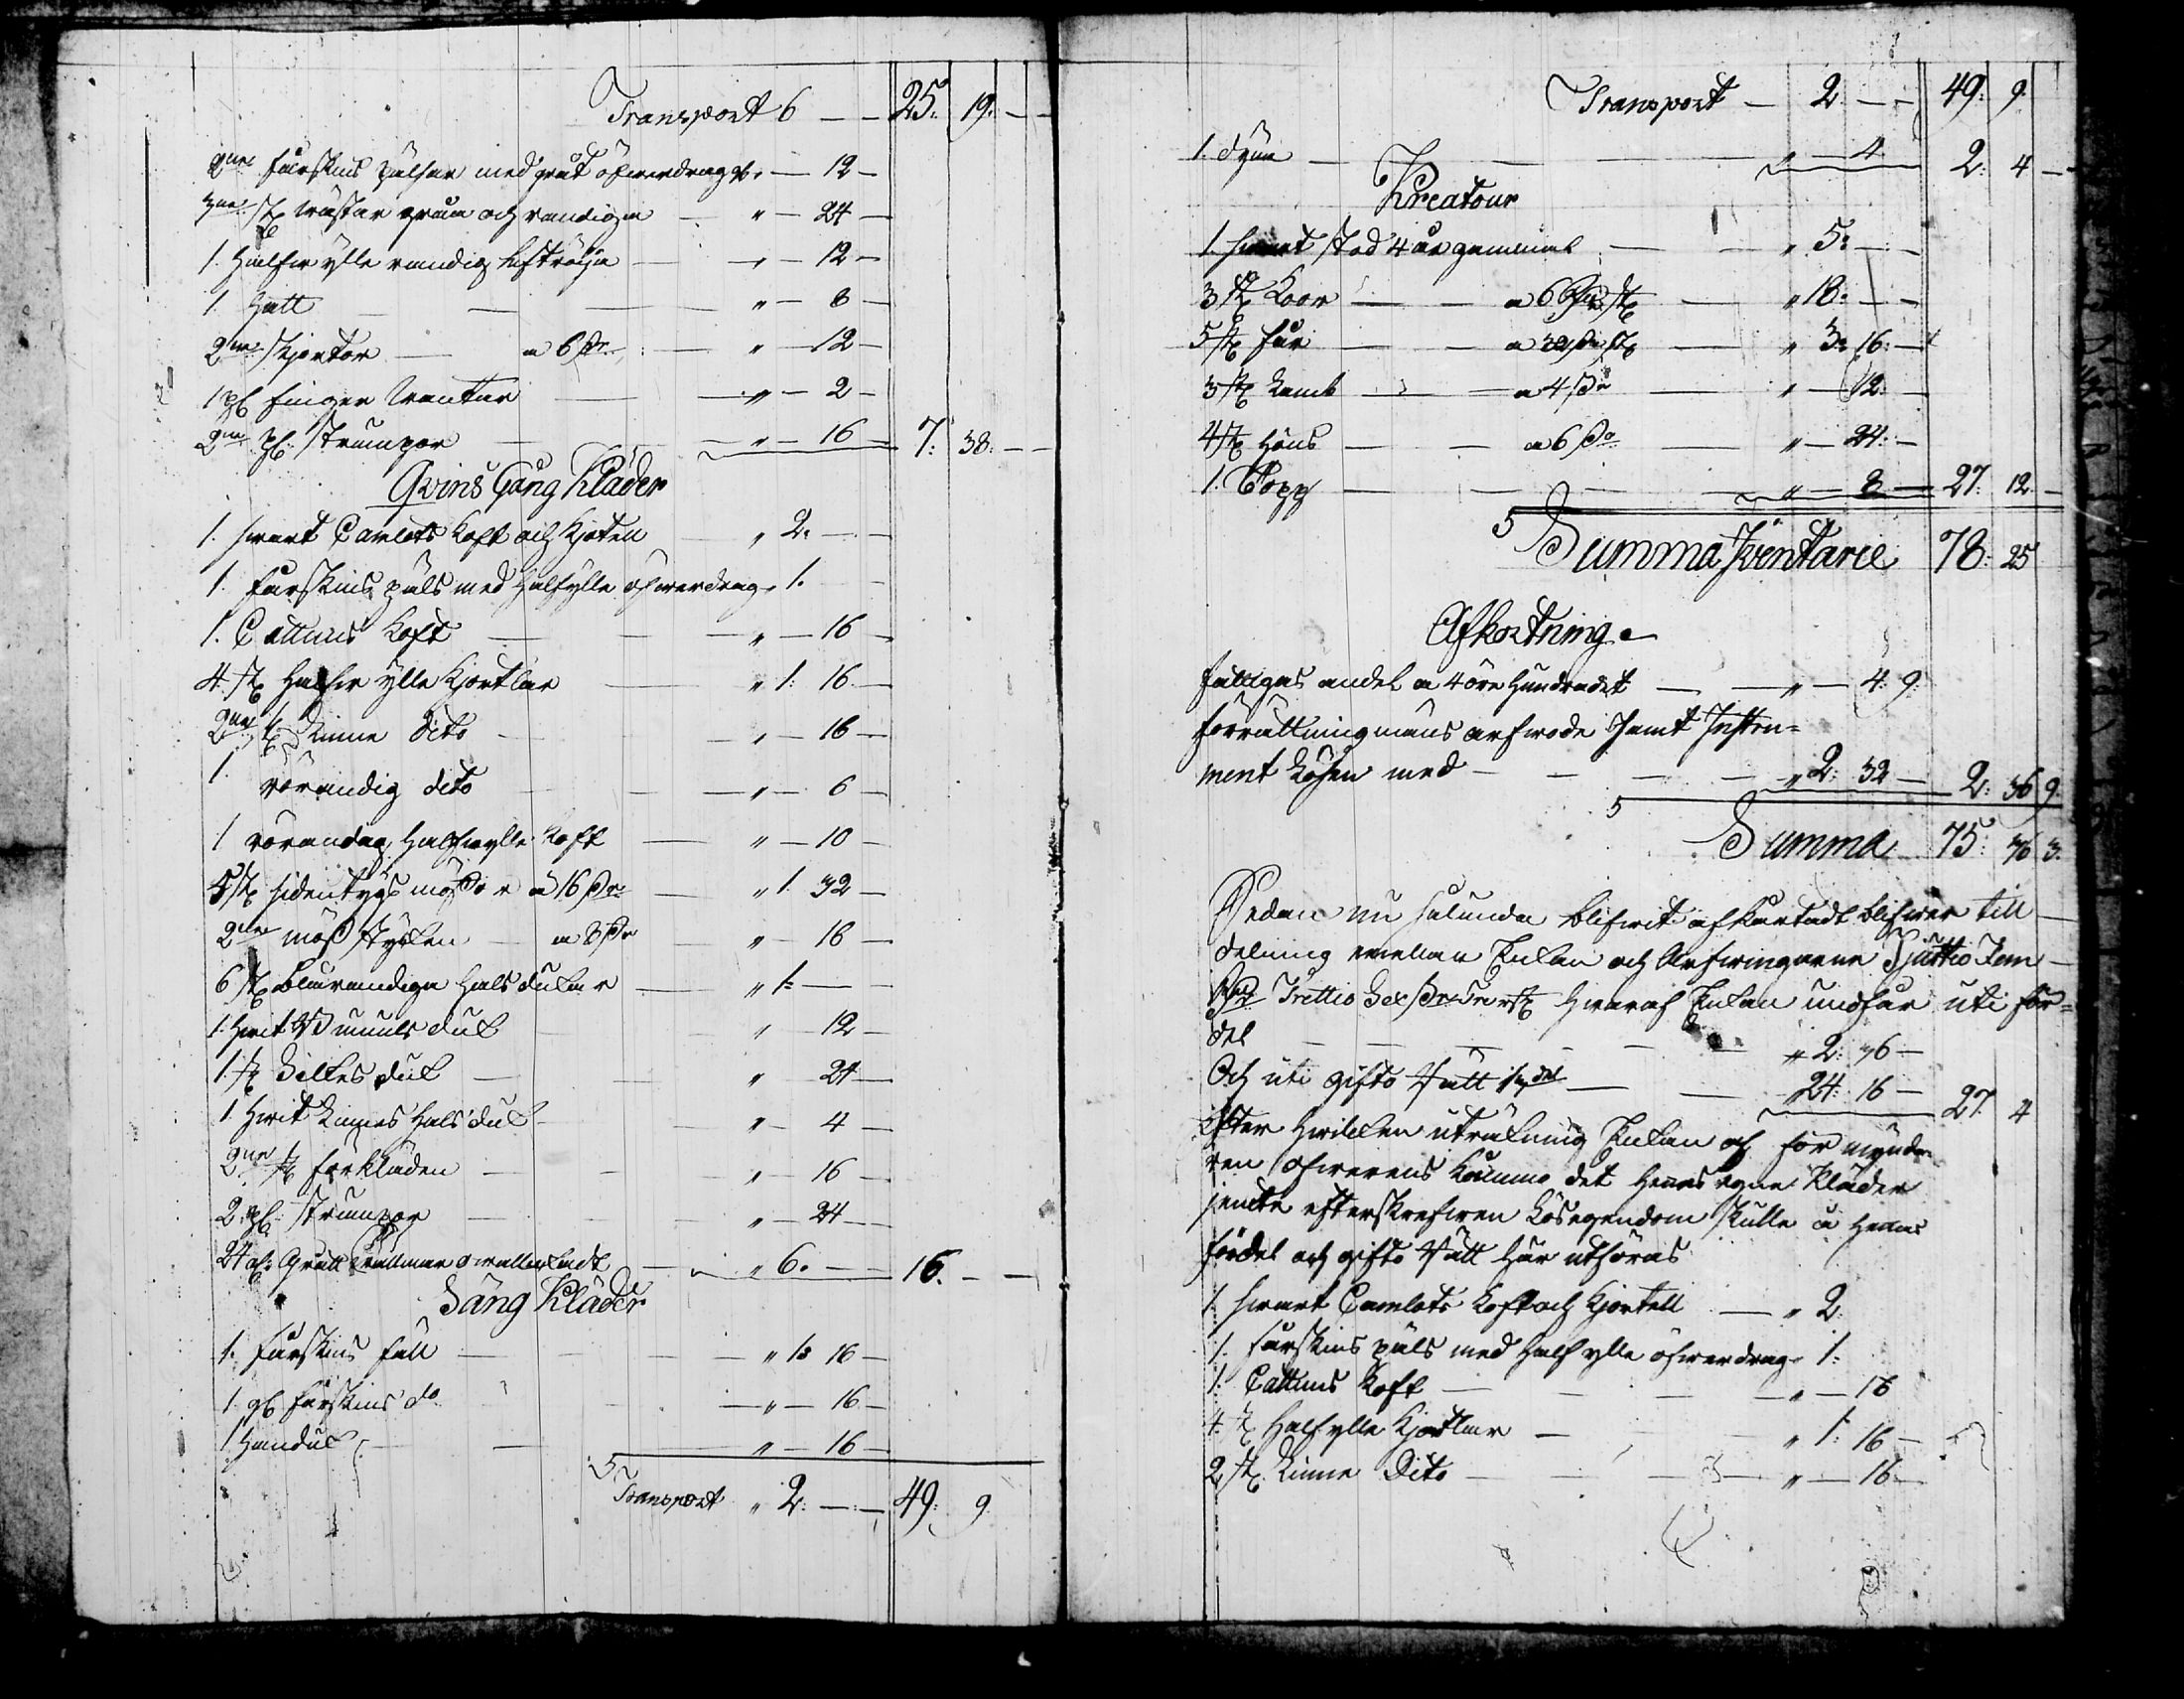 Transport 6 — — 25: 19. —
2ne fårskins pälsar med gråt öfwerdrag " — 12 —
3ne st wästar gråa och randiga — " — 24 —
1. Halfwylle randig lifströija — " — 12 —
1. Hatt — — " — 8 —
2ne Skjortor — a 6 sk — " — 12 —
1 pr finger Wantar — " — 2 —
2ne pr strumpor — " — 16 — 7: 38: — —
Qvins Gång Kläder
1. swart Camlots Koft och Kjortell " 2. — —
1. fårskins päls med halfylle öfwerdrag " 1. —
1. Cattuns Koft — " — 16 —
4. st halfwylle Kjortlar — " 1: 16 —
2ne st Linne dito — " — 16 —
1. rörandig dito — " — 6 —
1 rörandig Halfwylle Koft — " — 10 —
5 st sidentygs mössor a 16 sk — " 1. 32 —
2ne möss stycken — a 8 sk — " — 16 —
6 st blårandiga Halsdukar — " 1: — —
1. hwit Bumuls duk — " — 12 —
1. st Silkes duk — " — 24 —
1. hwit Linnes Halsduk — " — 4 —
2ne st förkläden — " — 16 —
2 pr strumpor — " — 24 —
24 al: Grått Wallmar — " 6. — — 16. — —
Säng Kläder
1. fårskins fäll — " 1: 16 —
1. fårskins do — " — 16 —
1 Handuk — " — 16 —
Transport " 2: — — 49: 9.
Transport — 2 — — 49: 9
1. dyna — " — 4 2: 4 —
Kreatour
1. swart stod 4 år gammal — " 5: —
3 st Koor — a 6 Rd st — " 18: — —
5 st får — a 32 sk st — " 3: 16: —
3 st Lamb — a 4 sk — " — 12 —
4 st Höns — a 6 sk — " — 24: —
1. Topp — " — 8 — 27: 12. —
Summa Inventarie 78: 25
Afkortning
fattigas andel a 4 öre hundradet — " — 4: 9:
förrättningmäns arfwode samt Instru=
ment Lösen med — " 2: 32 — 2: 36 9.
Summa 75: 36 3.
Sedan nu sålunda blifwit afkortadt blifwer till
delning emellan Enkan och Arfwingarne Sjuttio Fem
Rd Trettio Sex sk Tre rst hwaraf Enkan undfår uti för=
del — " 2: 36 —
Och uti gifto Rätt 1/3 del — 24: 16 — 27. 4
Efter hwilken uträkning Enkan och förmynda
ren öfwerens Komma det Hennes egna Kläder
jemte efterskrefwen Lösegendom skulle a Hennes
fördel och gifto Rätt här utföras
1. swart Camlots Koft och Kjortell — " 2
1. fårskins päls med Halfylle öfwerdrag " 1:
1. Cattuns Koft — " — 16
4. st Halfylle Kjortlar — " 1: 16 —
2 st Linne Dito — " — 16 —